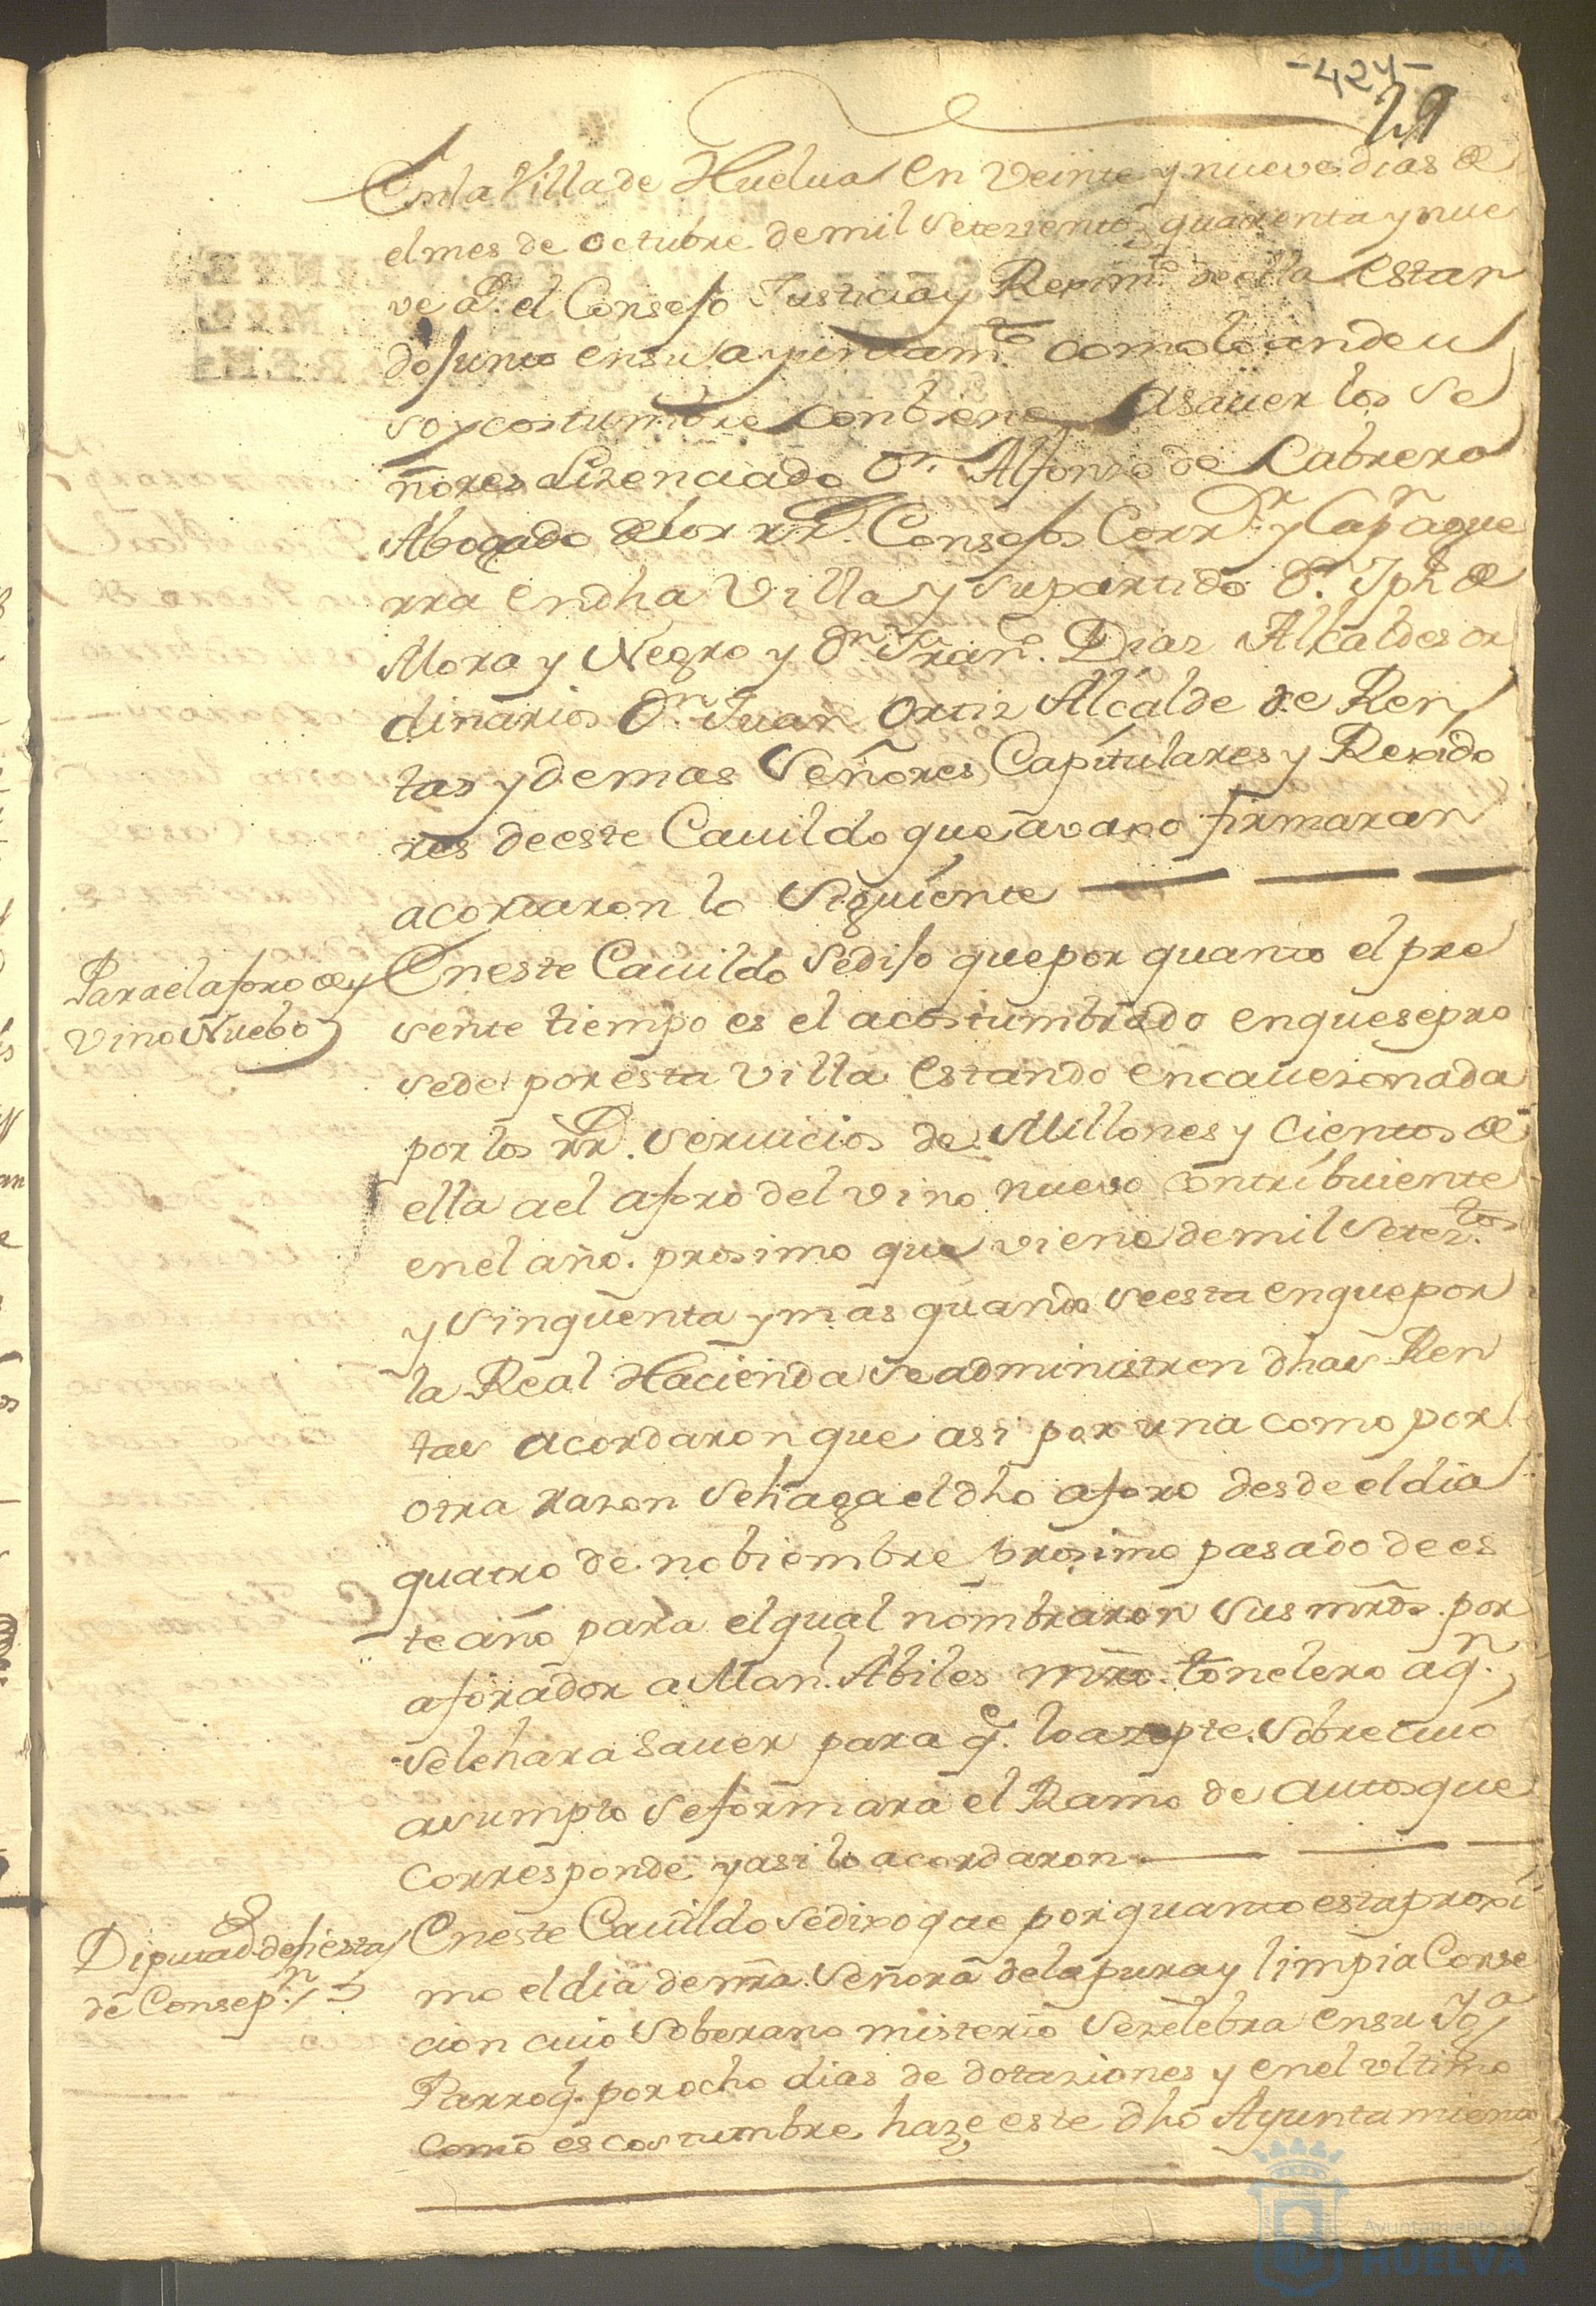 -424-
29
En la Villa de Huelua en veinte y nueve dias de
el mes de octubre de mil setezientos quarenta y nue
ve as. el Consejo Justicia y Reximto. de ella estan
do junto en su ayuntamto. como lo an de u
so y costumbre conbiene a sauer los se
ñores Lizenciado Dn. Alfonso de Cabrera
Abogado de los rrs. Consejos Corrdr. y Capn. a gue
rra en dha Villa y su partido Dn. Jph de
Mora y Negro y Dn. Franco. Diaz Alcaldes or
dinarios Dn. Juan Ortiz Alcalde de Ren
tas y demas Señores Capitulares y Rexido
res de este Cauildo que avaxo firmaran
acordaron lo siguiente
Para el aforo de
vino Nuebo
En este Cauildo se dijo que por quanto el pre
sente tiempo es el acostumbrado en que se pro
sede por esta villa estando encauezonada
por los rrs. seruicios de Millones y Cientos de
ella a el aforo del vino nuevo contribuiente
en el año. proximo que viene de mil seteztos.
y sinquenta y mas quando se esta en que por
la Real Hacienda se administren dhas Ren
tas acordaron que asi por una como por
otra razon se haga el dho aforo desde el dia
quatro de nobiembre proximo pasado de es
te año para el qual nombraron sus mrds. por
aforador a Manl. Abiles mro. tonelero a qn.
se le hara sauer para q. lo azepte. sobre cuio
asumpto se formara el Ramo de autos que
corresponde y asi lo acordaron
Diputads. de fiesta
de Consepn.
En este Cauildo se dixo que por quanto esta proxi
mo el dia de nra. Señora de la pura y limpia Conse
cion cuio soberano misterio se zelebra en su Yga
Parroql. por ocho dias de dotaziones y en el ultimo
como es costumbre haze este dho Ayuntamiento
Ayuntamiento de
HUELVA